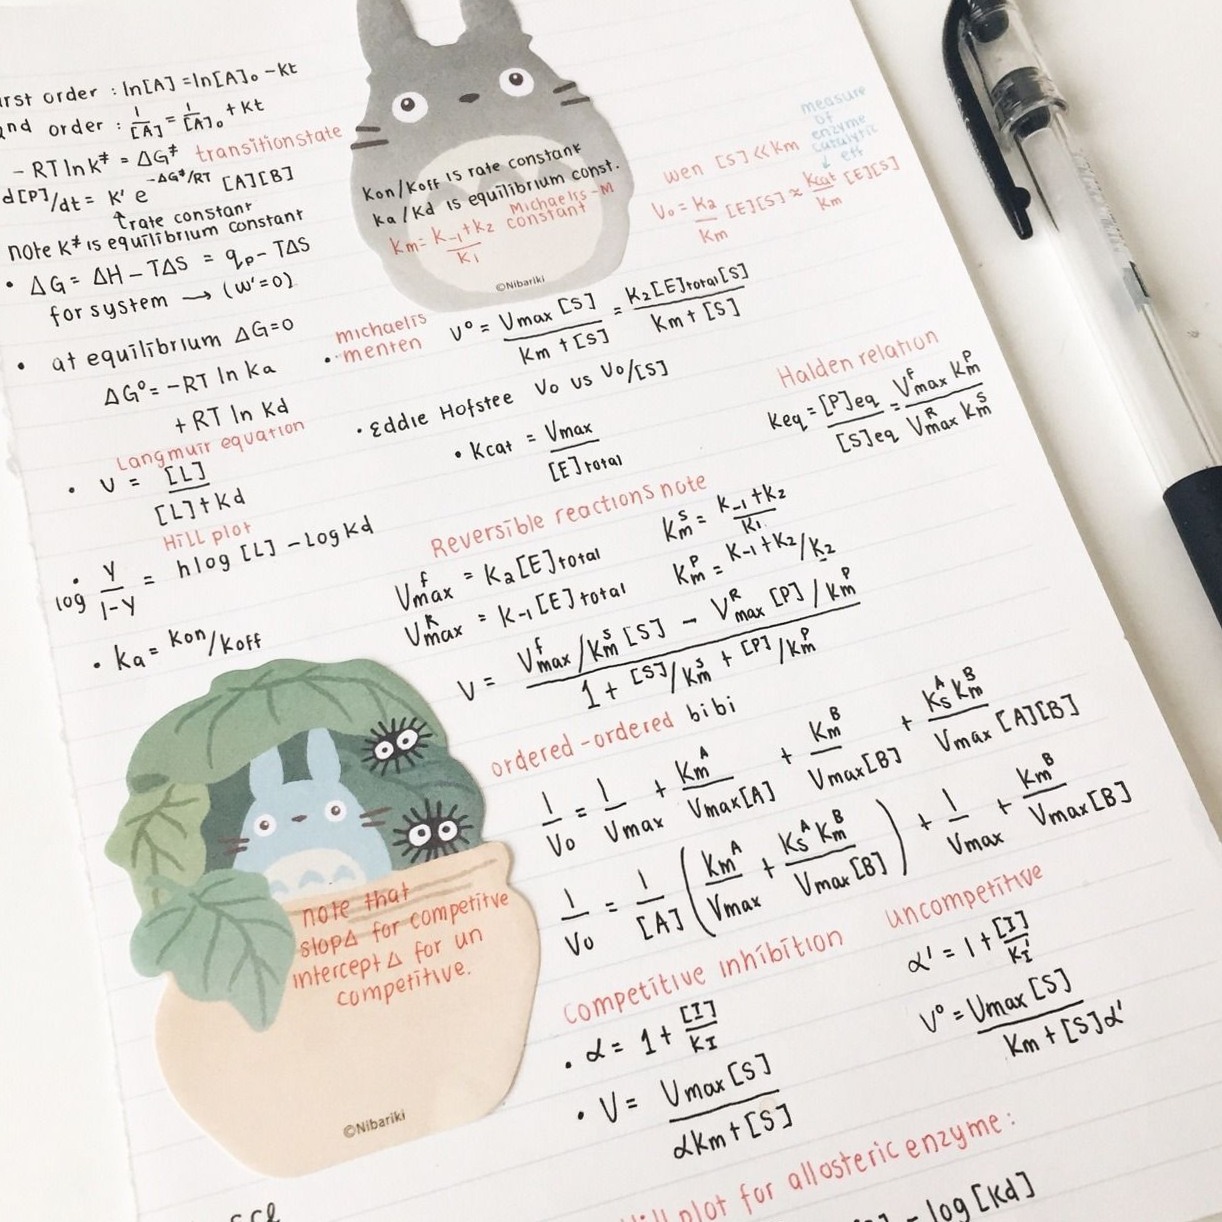 rst order : ln[A] = ln[A]₀ - kt
nd order : 1/[A] = 1/[A]₀ + kt
- RT ln K‡ = ΔG‡ transitionstate
d[P]/dt = K' e^-ΔG‡/RT [A][B]
↑rate constant
note K‡ is equilibrium constant
• ΔG = ΔH - TΔS = qp - TΔS
for system → (w'=0)
• at equilibrium ΔG=0
ΔG° = -RT ln ka
+ RT ln Kd
Langmuir equation
• ν = [L]/[L]+Kd
Hill plot
• log Y/1-Y = hlog [L] - log Kd
• ka = Kon/Koff
Kon/Koff is rate constant
ka/Kd is equilibrium const.
Michaelis-M
constant
Km = K-1+K2/K1
©Nibariki
measure
of
enzyme
catalytic
↓ eff
wen [S] << Km
V₀ = K2/Km [E][S] ≈ Kcat/Km [E][S]
michaelis
• menten
V° = Vmax [S]/Km + [S] = K2[E]total[S]/Km + [S]
• Eddie Hofstee Vo vs Vo/[S]
• Kcat = Vmax/[E]total
Halden relation
Keq = [P]eq/[S]eq = V^f max K^P m/V^R max K^S m
Reversible reactions note
V^f max = K2[E]total
K^S m = K-1+K2/K1
V^R max = K-1[E]total
K^P m = K-1+K2/K2
V = V^f max/K^S m [S] - V^R max [P]/K^P m / 1 + [S]/K^S m + [P]/K^P m
ordered-ordered bibi
1/Vo = 1/Vmax + Km^A/Vmax[A] + Km^B/Vmax[B] + Ks^A Km^B/Vmax [A][B]
1/Vo = 1/[A] (Km^A/Vmax + Ks^A Km^B/Vmax[B]) + 1/Vmax + Km^B/Vmax[B]
note that
slopΔ for competitve
interceptΔ for un
competitive.
©Nibariki
competitive inhibition
• α = 1 + [I]/KI
• V = Vmax [S]/αKm + [S]
uncompetitive
α' = 1 + [I]/KI'
V° = Vmax [S]/Km + [S]α'
ill plot for allosteric enzyme:
- log [Kd]